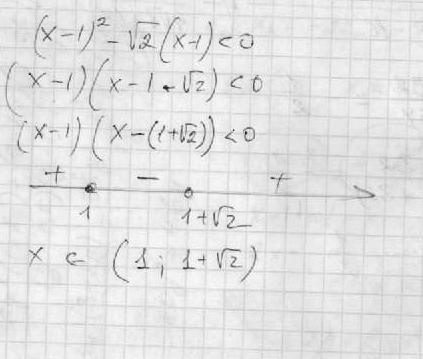 (x-1)² - √2(x-1) < 0
(x-1)(x-1-√2) < 0
(x-1)(x-(1+√2)) < 0
+ - +
1 1+√2
x ∈ (1; 1+√2)